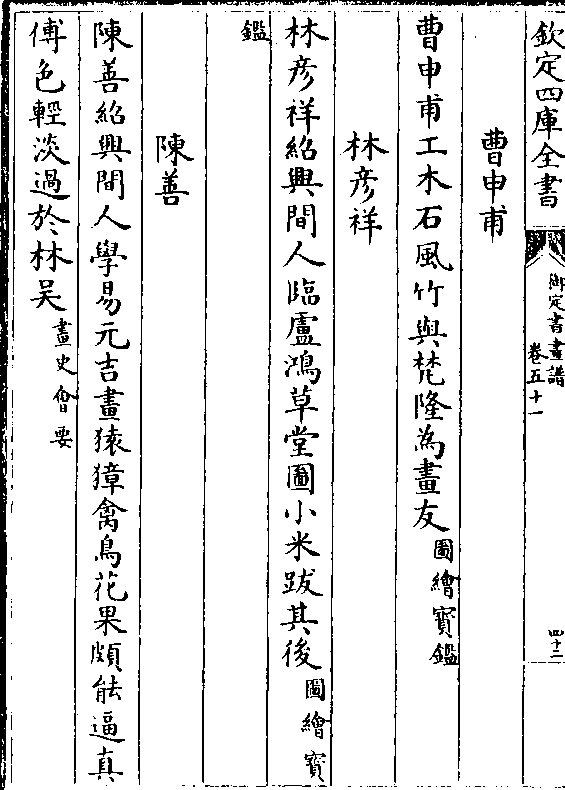 欽定四庫全書
御定書畫譜
卷五十一
四十二
曹申甫
曹申甫工木石風竹與梵隆為畫友圖繪寶鑑
林彥祥
林彥祥紹興間人臨盧鴻草堂圖小米跋其後圖繪寶
鑑
陳善
陳善紹興間人學易元吉畫猿獐禽鳥花果頗能逼真
傅色輕淡過於林吳畫史會要